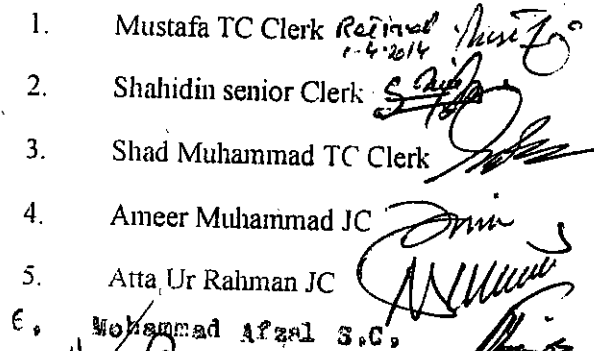 1. Mustafa TC Clerk Retired 1-4-2014
2. Shahidin senior Clerk
3. Shad Muhammad TC Clerk
4. Ameer Muhammad JC
5. Atta Ur Rahman JC
6. Mohammad Afzal S.C.